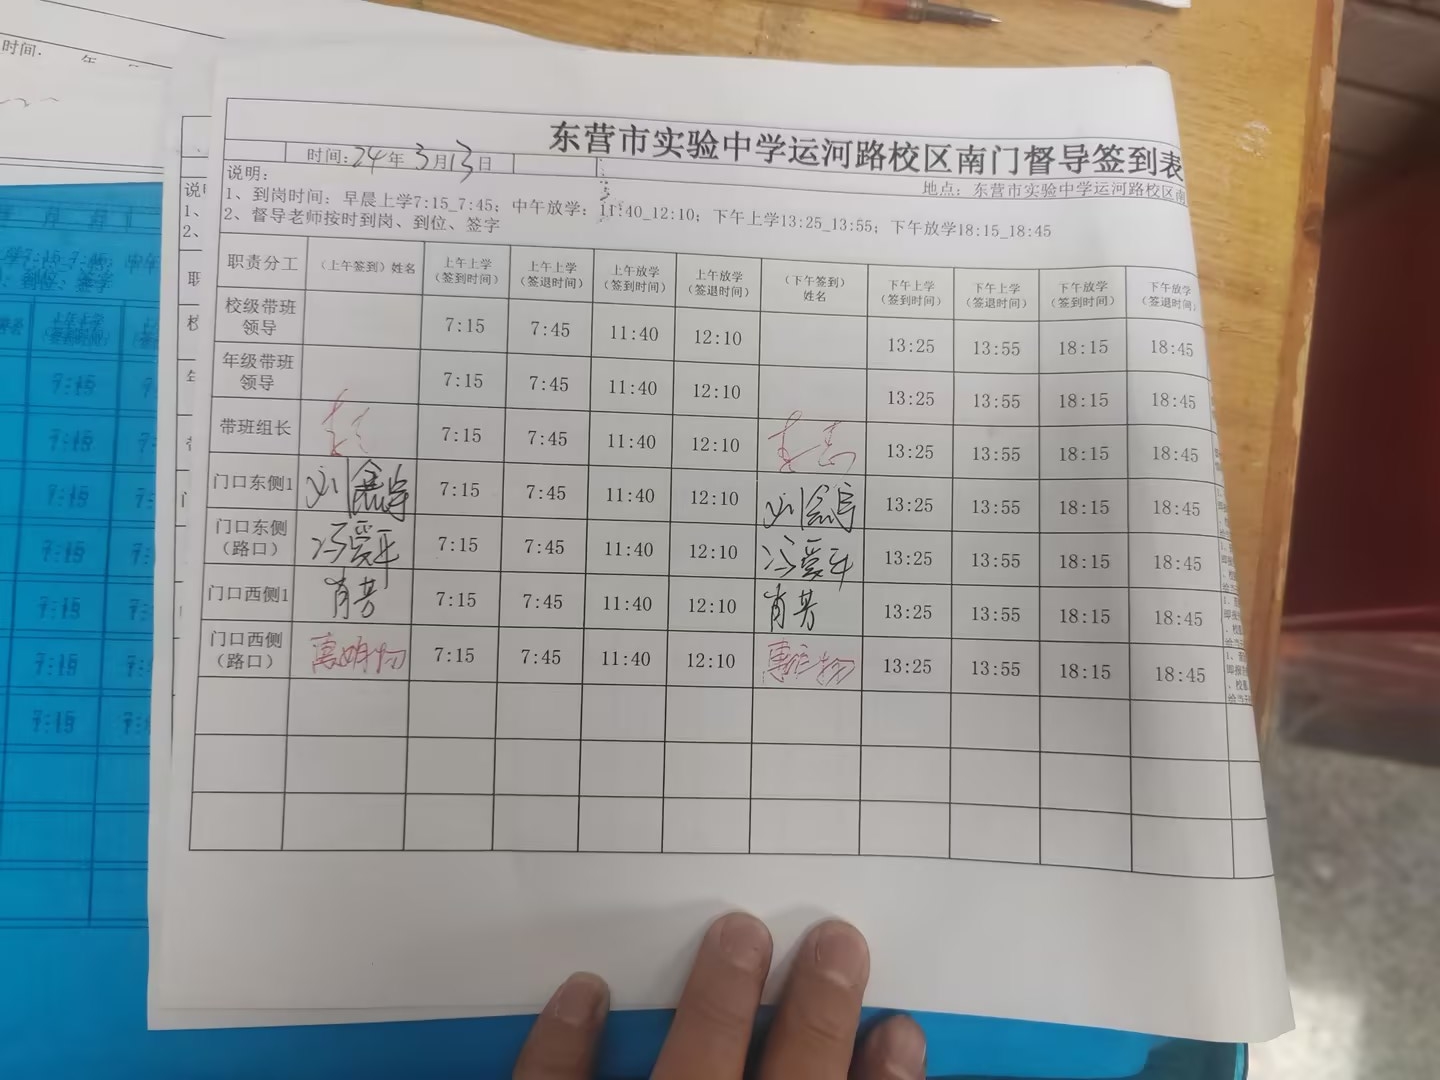 东营市实验中学运河路校区南门督导签到表
时间:24年3月13日
地点：东营市实验中学运河路校区南
说明:
1、到岗时间：早晨上学7:15_7:45；中午放学：11:40_12:10；下午上学13:25_13:55；下午放学18:15_18:45
2、督导老师按时到岗、到位、签字
职责分工 （上午签到）姓名 上午上学（签到时间） 上午上学（签退时间） 上午放学（签到时间） 上午放学（签退时间） （下午签到）姓名 下午上学（签到时间） 下午上学（签退时间） 下午放学（签到时间） 下午放学（签退时间）
校级带班领导 7:15 7:45 11:40 12:10 13:25 13:55 18:15 18:45
年级带班领导 7:15 7:45 11:40 12:10 13:25 13:55 18:15 18:45
带班组长 7:15 7:45 11:40 12:10 13:25 13:55 18:15 18:45
门口东侧1 7:15 7:45 11:40 12:10 13:25 13:55 18:15 18:45
门口东侧（路口） 冯爱平 7:15 7:45 11:40 12:10 冯爱平 13:25 13:55 18:15 18:45
门口西侧1 肖芳 7:15 7:45 11:40 12:10 肖芳 13:25 13:55 18:15 18:45
门口西侧（路口） 7:15 7:45 11:40 12:10 13:25 13:55 18:15 18:45
时间: 年